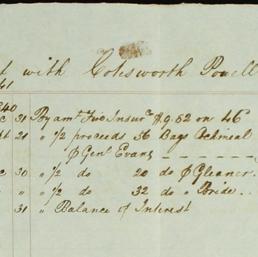 t with Colesworth Powell
41
40
c 31 By amt Fire Insurce $9.52 on 46
21 " 1/2 proceeds 36 Bags Oatmeal
⅌ Genl Evans
c 30 " 1/2 do 20 do ⅌ Gleaner
" 1/2 do 32 do " Bride
31 " Balance of Interest